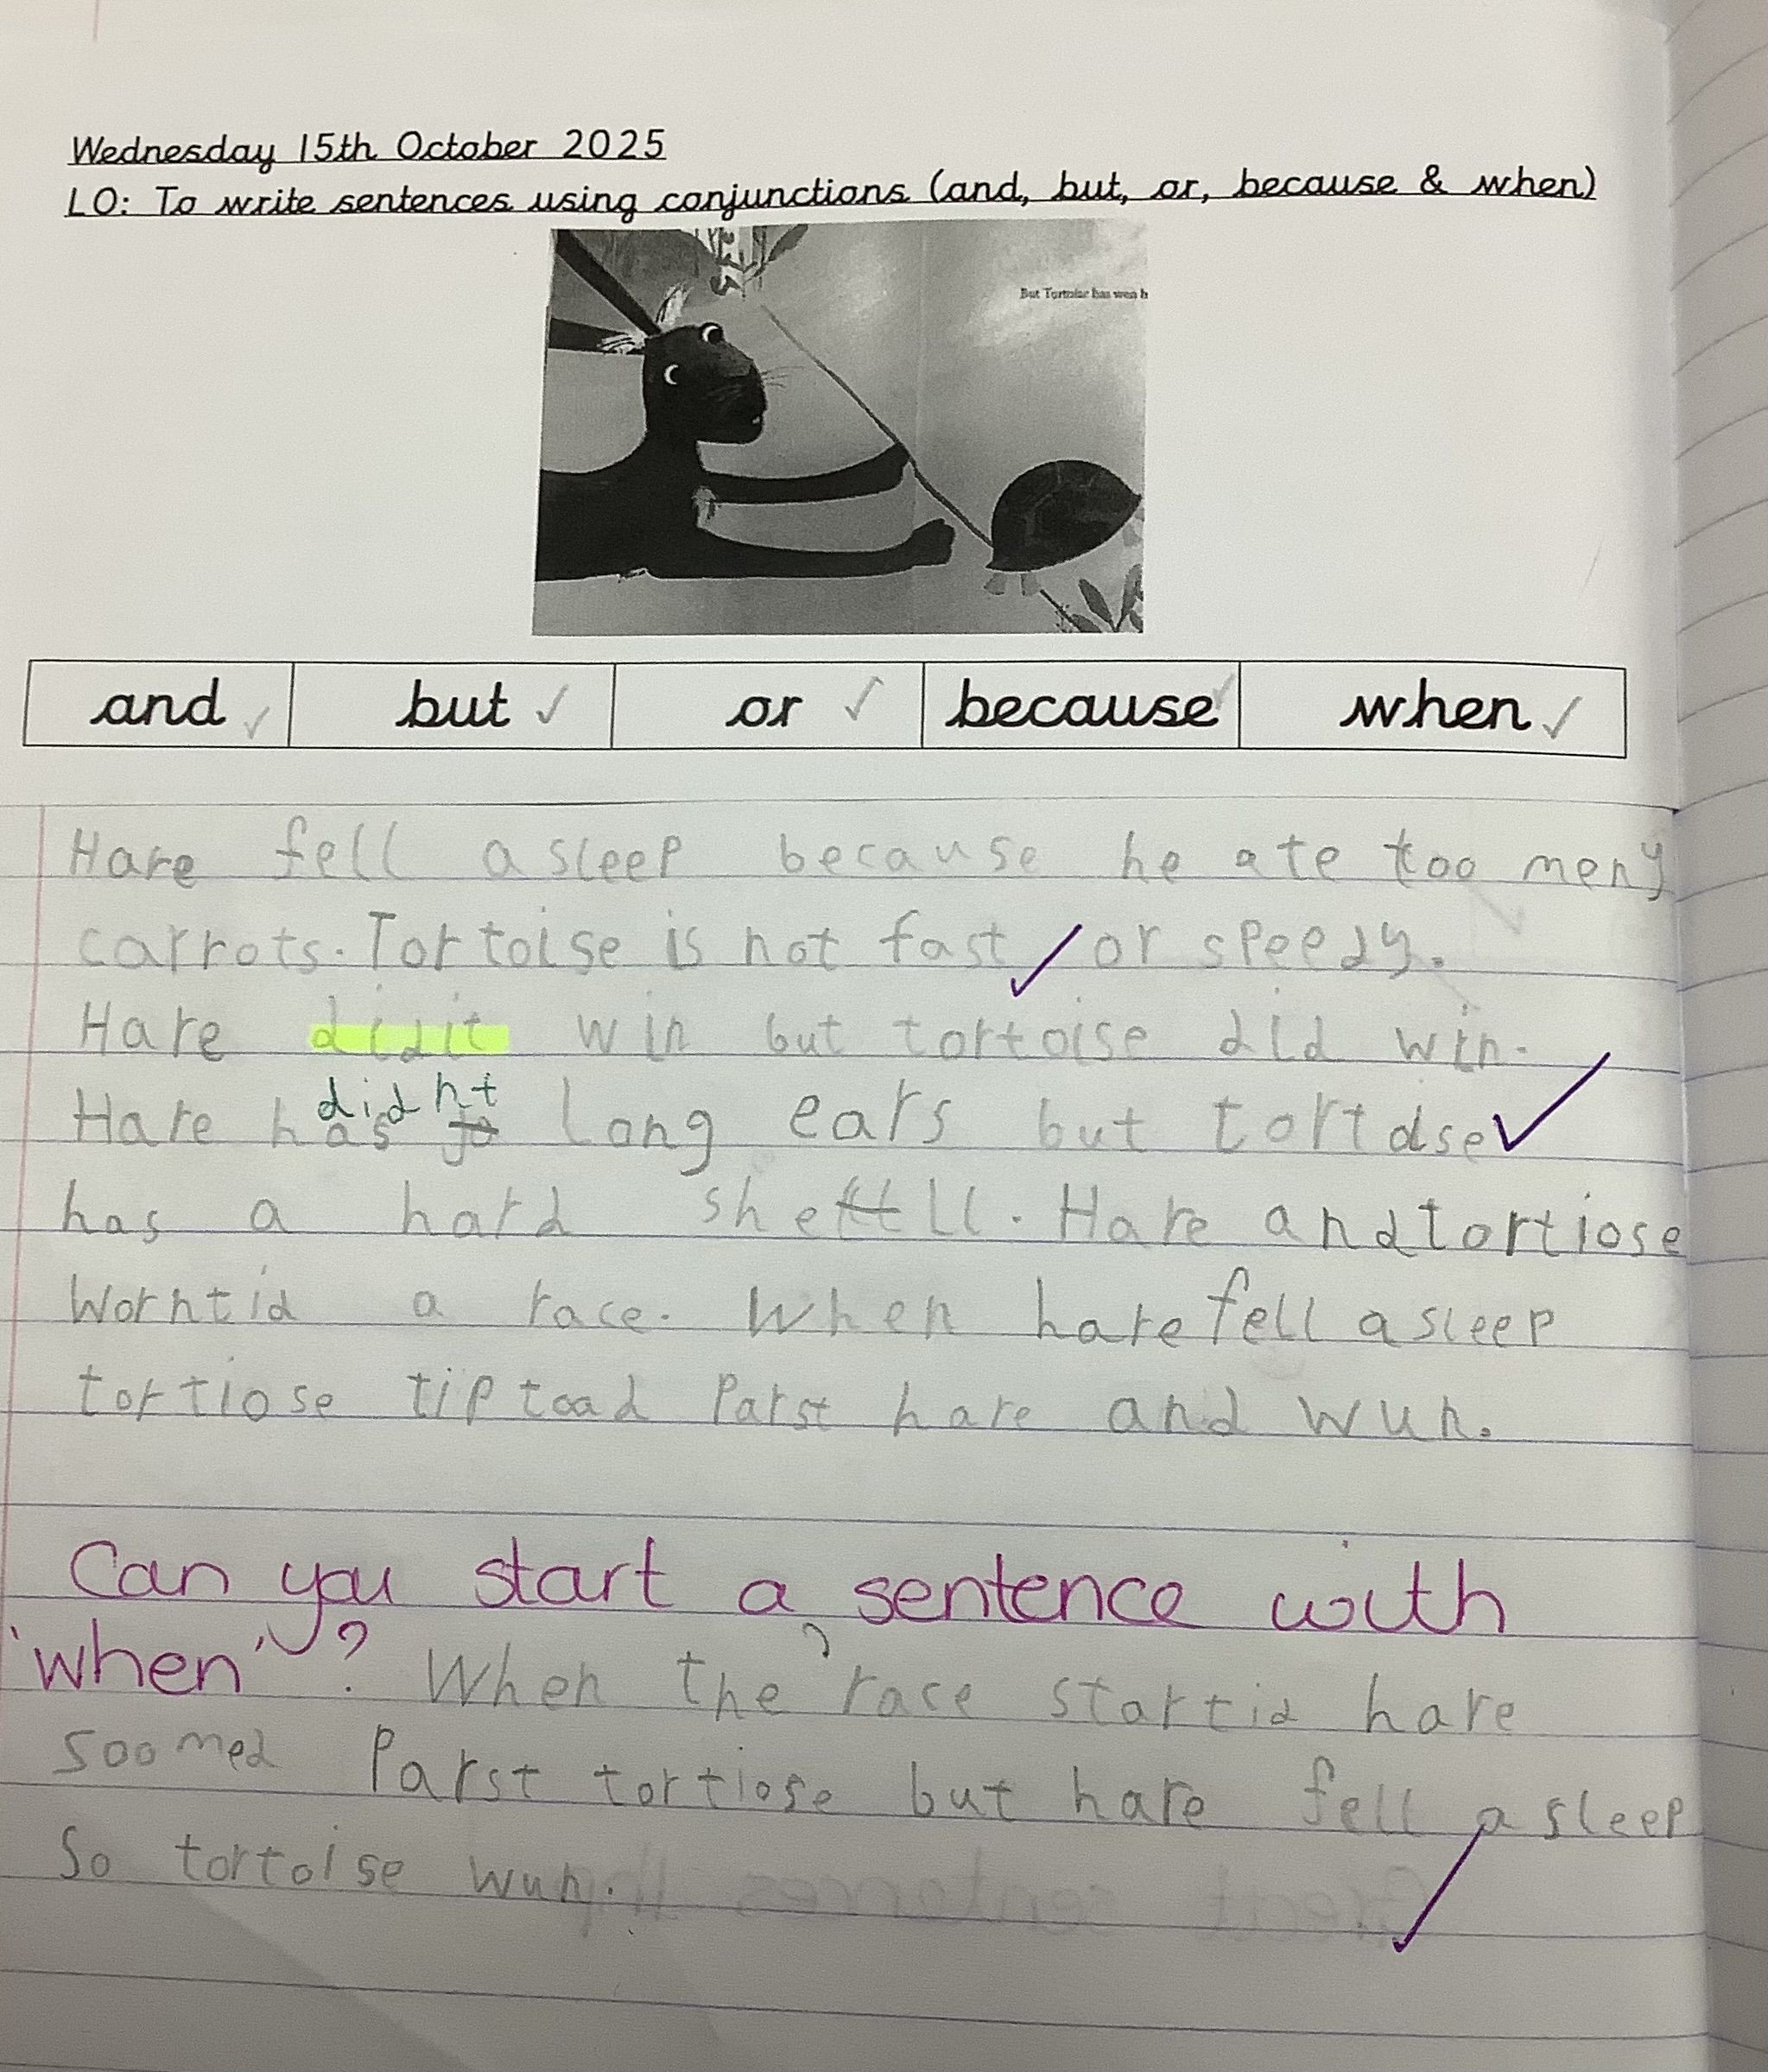 Wednesday 15th October 2025
LO: To write sentences using conjunctions (and, but, or, because & when)
But Tortoise has won h
and ✓ but ✓ or ✓ because ✓ when ✓
Hare fell asleep because he ate too meny
carrots. Tortoise is not fast or speedy.
Hare didit win but tortoise did win.
didnt
Hare has long ears but tortoise
has a hard shell. Hare and tortiose
worntid a race. When hare fell asleep
tortiose tiptoad parst hare and wun.
Can you start a sentence with
'when'? When the race startid hare
soomed parst tortiose but hare fell asleep
so tortoise wun.